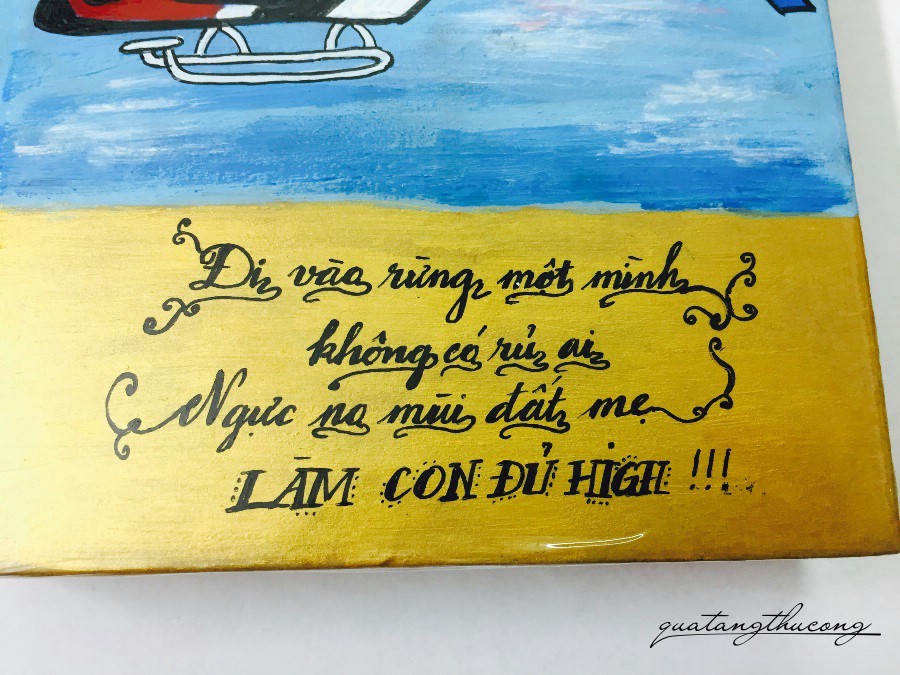 Đi vào rừng một mình
không có rủ ai
Ngực no mùi đất mẹ
LÀM CON ĐỦ HIGH !!!
quatangthucong